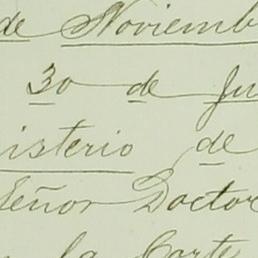 de Noviemb
30 de Ju
isterio de
Señor Doctor
la Corte